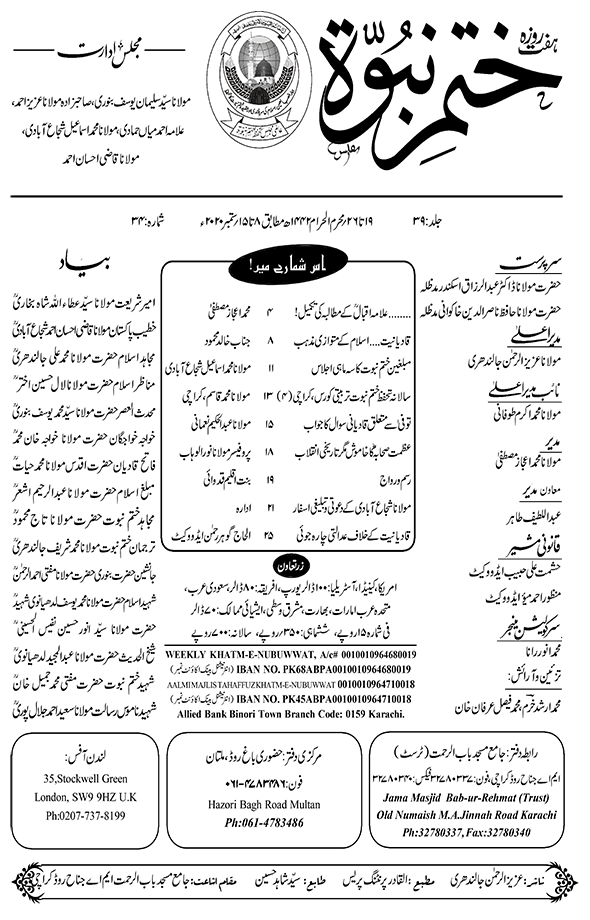 ہفت روزہ
ختم نبوۃ
مجلس ادارت
مولانا سید سلیمان یوسف بنوری، صاحبزادہ مولانا عزیز احمد،
علامہ احمد میاں حمادی، مولانا محمد اسماعیل شجاع آبادی،
مولانا قاضی احسان احمد
جلد: ۳۹
۱۹ تا ۲۶ محرم الحرام ۱۴۴۲ھ مطابق ۸ تا ۱۵ ستمبر ۲۰۲۰ء
شمارہ: ۳۴
سرپرست
حضرت مولانا ڈاکٹر عبدالرزاق اسکندر مدظلہ
حضرت مولانا حافظ ناصر الدین خاکوانی مدظلہ
مدیر اعلیٰ
مولانا عزیز الرحمٰن جالندھری
نائب مدیر اعلیٰ
مولانا محمد اکرم طوفانی
مدیر
مولانا محمد اعجاز مصطفیٰ
معاون مدیر
عبداللطیف طاہر
قانونی مشیر
حشمت علی حبیب ایڈووکیٹ
منظور احمد میؤ ایڈووکیٹ
سرکولیشن منیجر
محمد انور رانا
تزئین و آرائش:
محمد ارشد خرم، محمد فیصل عرفان خان
اس شمارے میں!
........علامہ اقبالؒ کے مطالبہ کی تکمیل! ۴ محمد اعجاز مصطفیٰ
قادیانیت.....اسلام کے متوازی مذہب ۸ جناب خالد محمود
مبلغین ختم نبوت کا سہ ماہی اجلاس ۱۱ مولانا محمد اسماعیل شجاع آبادی
سالانہ تحفظ ختم نبوت تربیتی کورس، کراچی (۴) ۱۳ مولانا محمد قاسم، کراچی
توفی سے متعلق قادیانی سوال کا جواب ۱۵ مولانا عبدالحکیم نعمانی
عظمت صحابہؓ کا خاموش مگر تاریخی انقلاب ۱۸ پروفیسر مولانا نور الوہاب
رسم و رواج ۱۹ بنت اقلیم قدوائی
مولانا شجاع آبادی کے دعوتی و تبلیغی اسفار ۲۱ ادارہ
قادیانیت کے خلاف عدالتی چارہ جوئی ۲۵ الحاج گوہر رحمٰن ایڈووکیٹ
زر تعاون
امریکا، کینیڈا، آسٹریلیا: ۱۰۰ ڈالر یورپ، افریقہ: ۸۰ ڈالر، سعودی عرب،
متحدہ عرب امارات، بھارت، مشرق وسطیٰ، ایشیائی ممالک: ۷۰ ڈالر
فی شمارہ ۱۵ روپے، ششماہی: ۳۵۰ روپے، سالانہ: ۷۰۰ روپے
WEEKLY KHATM-E-NUBUWWAT, A/c# 0010010964680019
IBAN NO. PK68ABPA0010010964680019 (انٹرنیشنل بینک اکاؤنٹ نمبر)
AALMI MAJLIS TAHAFFUZ KHATM-E-NUBUWWAT 0010010964710018
IBAN NO. PK45ABPA0010010964710018 (انٹرنیشنل بینک اکاؤنٹ نمبر)
Allied Bank Binori Town Branch Code: 0159 Karachi.
بیاد
امیر شریعت مولانا سید عطاء اللہ شاہ بخاریؒ
خطیب پاکستان مولانا قاضی احسان احمد شجاع آبادیؒ
مجاہد اسلام حضرت مولانا محمد علی جالندھریؒ
مناظر اسلام حضرت مولانا لال حسین اخترؒ
محدث العصر حضرت مولانا سید محمد یوسف بنوریؒ
خواجہ خواجگان حضرت مولانا خواجہ خان محمدؒ
فاتح قادیان حضرت اقدس مولانا محمد حیاتؒ
مبلغ اسلام حضرت مولانا عبدالرحیم اشعرؒ
مجاہد ختم نبوت حضرت مولانا تاج محمودؒ
ترجمان ختم نبوت حضرت مولانا محمد شریف جالندھریؒ
جانشین حضرت بنوری حضرت مولانا مفتی احمد الرحمٰنؒ
شہید اسلام حضرت مولانا محمد یوسف لدھیانوی شہیدؒ
حضرت مولانا سید انور حسین نفیس الحسینیؒ
شیخ الحدیث حضرت مولانا عبدالمجید لدھیانویؒ
شہید ختم نبوت حضرت مفتی محمد جمیل خانؒ
شہید ناموس رسالت مولانا سعید احمد جلال پوریؒ
رابطہ دفتر: جامع مسجد باب الرحمت (ٹرسٹ)
ایم اے جناح روڈ کراچی، فون: ۳۲۷۸۰۳۳۷ فیکس: ۳۲۷۸۰۳۴۰
Jama Masjid Bab-ur-Rehmat (Trust)
Old Numaish M.A.Jinnah Road Karachi
Ph:32780337, Fax:32780340
مرکزی دفتر: حضوری باغ روڈ، ملتان
فون: ۰۶۱-۴۷۸۳۴۸۶
Hazori Bagh Road Multan
Ph:061-4783486
لندن آفس:
35,Stockwell Green
London, SW9 9HZ U.K
Ph:0207-737-8199
ناشر: عزیز الرحمٰن جالندھری مطبع: القادر پرنٹنگ پریس طابع: سید شاہد حسین مقام اشاعت: جامع مسجد باب الرحمت ایم اے جناح روڈ کراچی